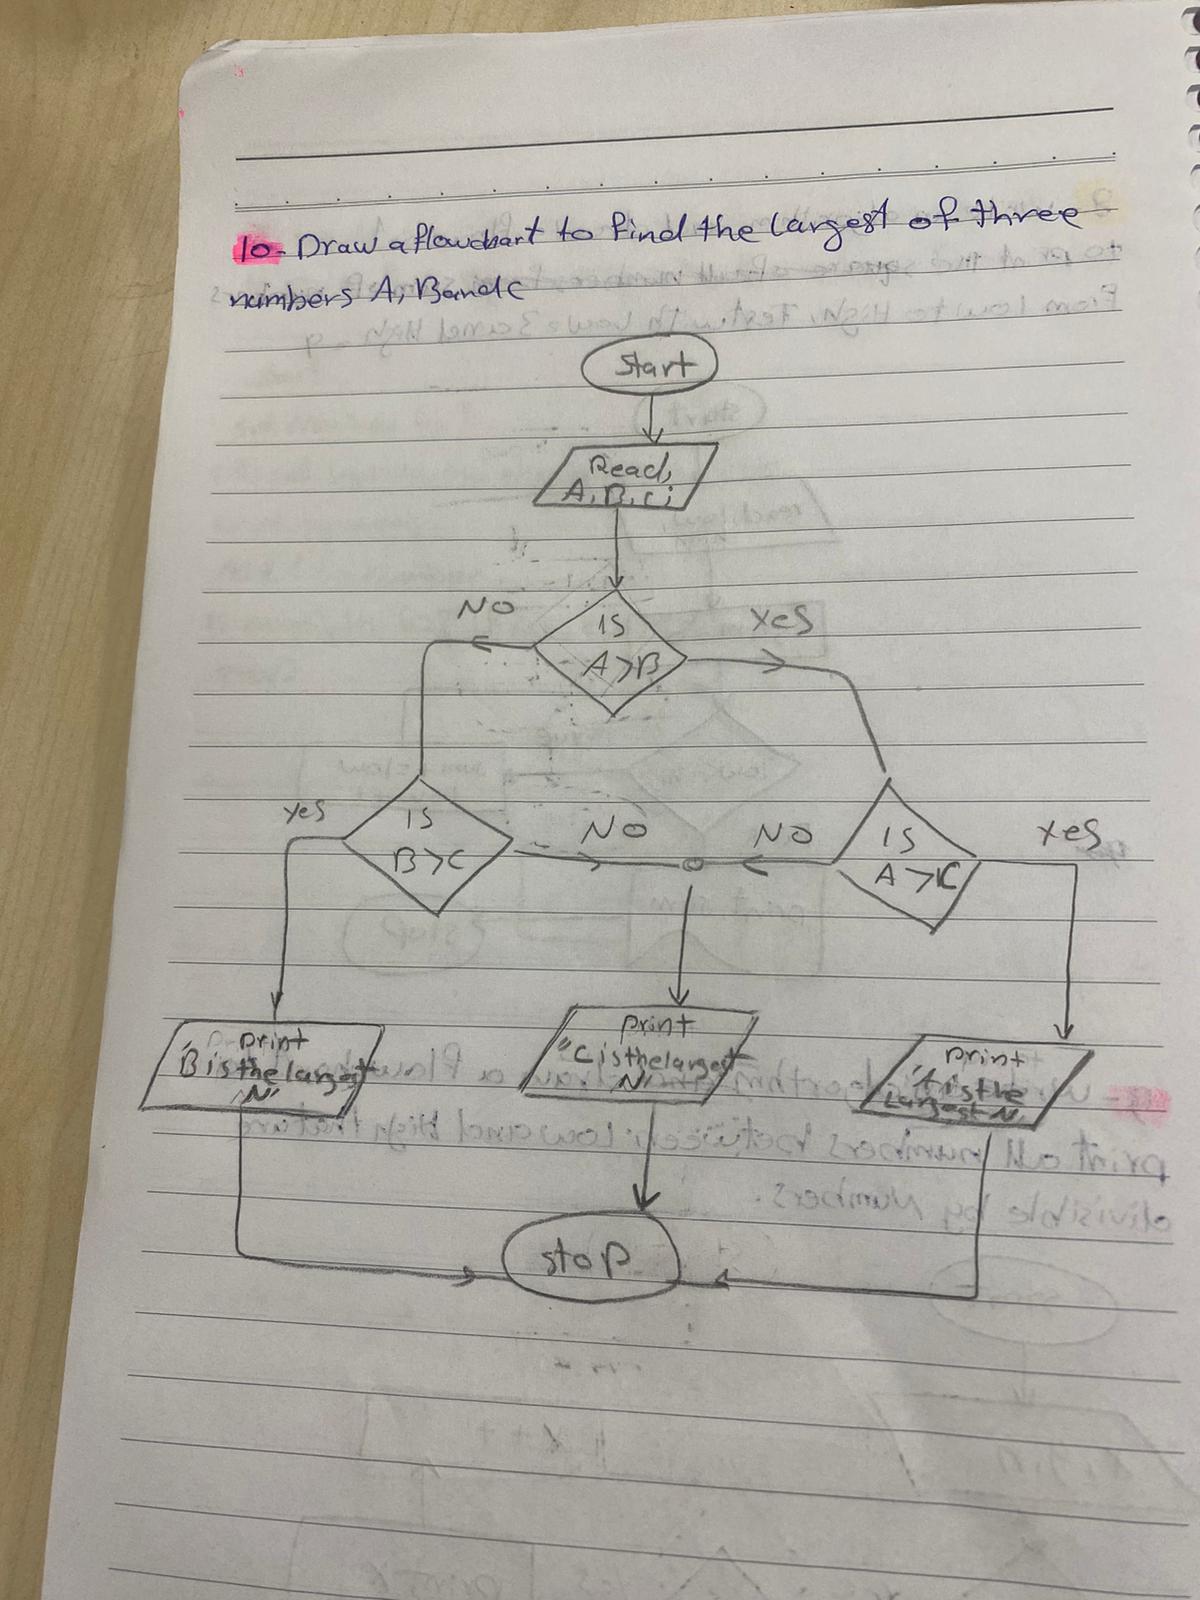 10- Draw a flowchart to find the largest of three
numbers A, B and C
Start
Read,
A, B, C;
NO
IS
A>B
Yes
yes
IS
B>C
NO
NO
IS
A>C
Yes
print
"B is the largest
N"
print
"C is the largest
N"
print
"A is the
Largest N"
stop